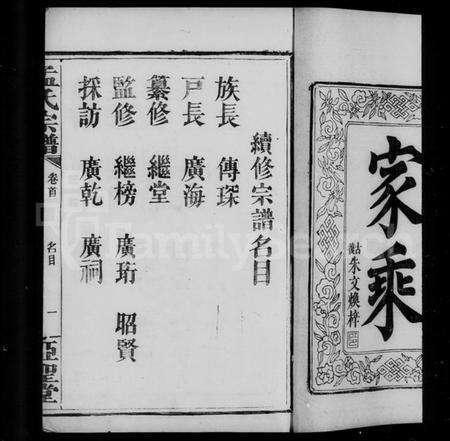 家乘
朱文煥梓
續修宗譜名目
族長 傳琛
戸長 廣海
纂修 繼堂
監修 繼榜 廣珩 昭賢
採訪 廣乾 廣祠
孟氏宗譜 卷首 名目 一 亞聖堂